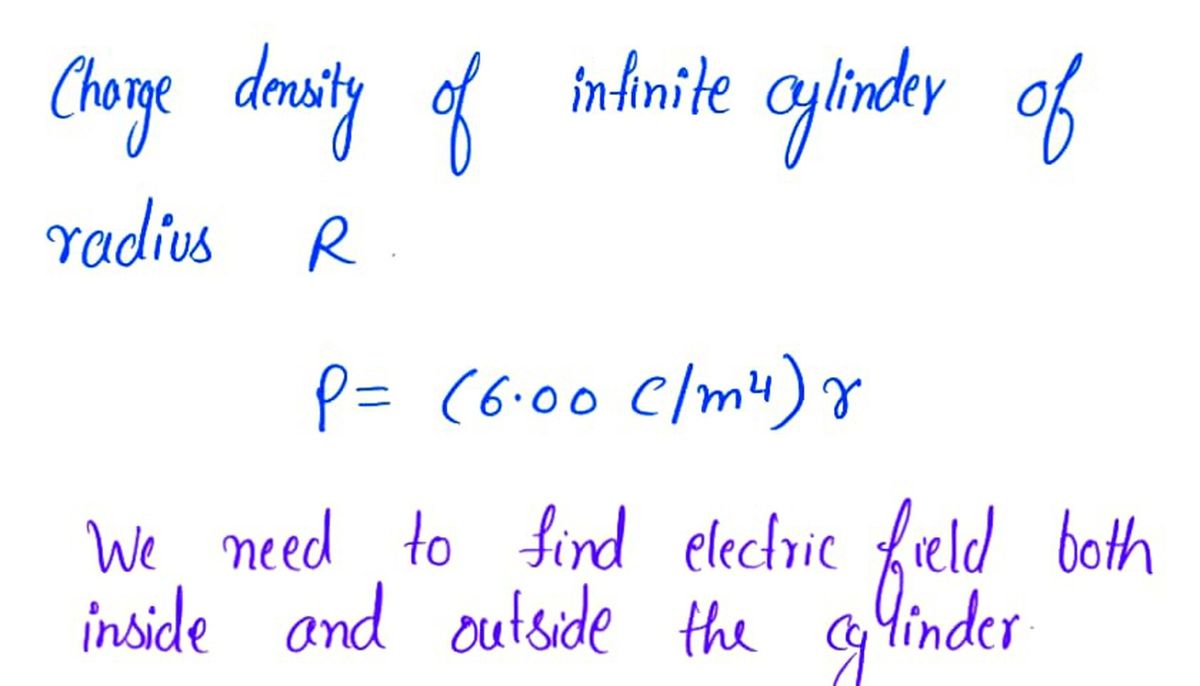 Charge density of infinite cylinder of
radius R
ρ= (6.00 C/m⁴) r
We need to find electric field both
inside and outside the cylinder.